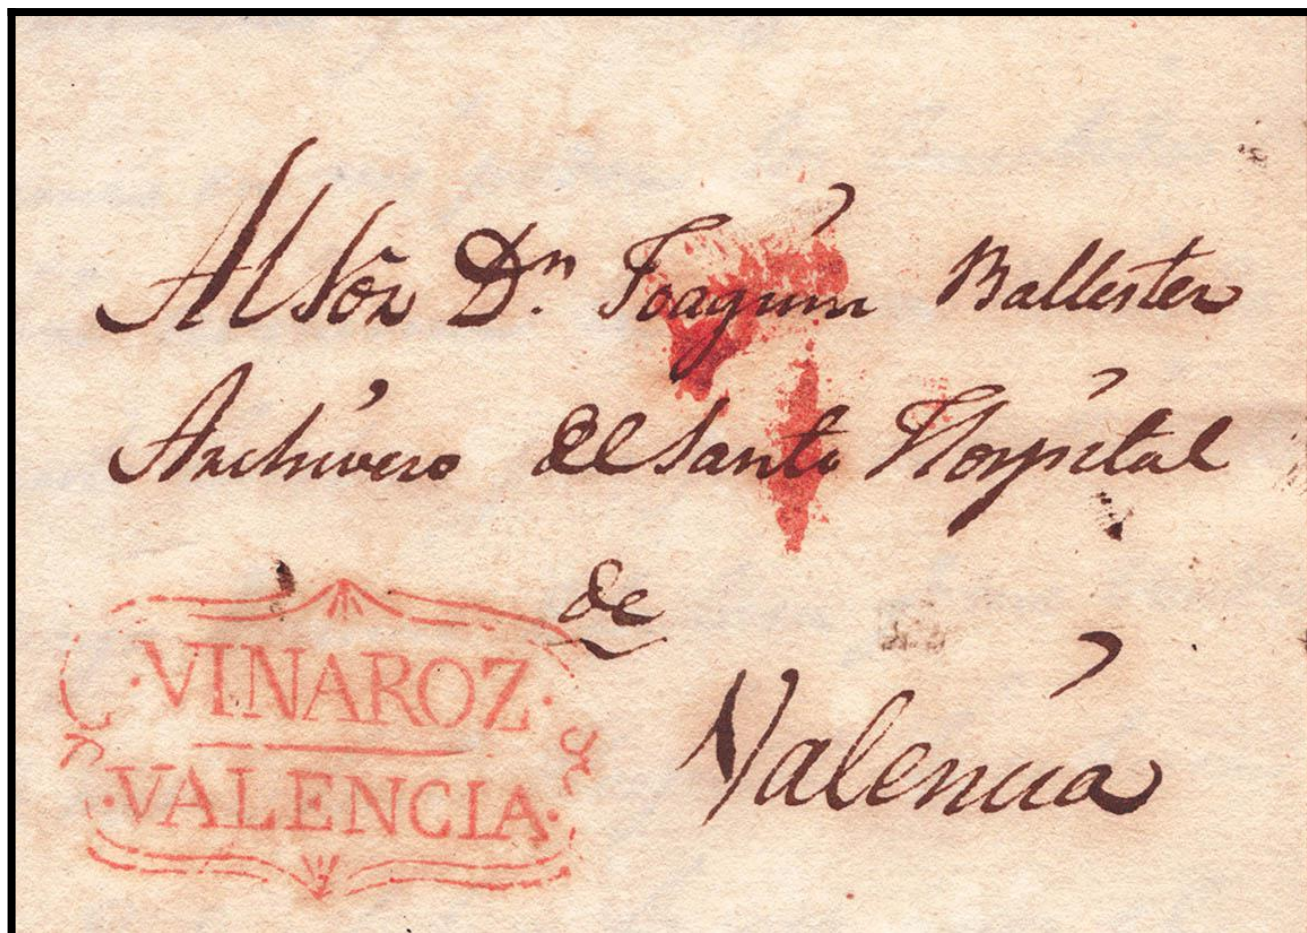 Al Sõr Dn. Joaquin Ballester
Archivero del Santo Hospital
de
Valencia
7
·VINAROZ·
·VALENCIA·